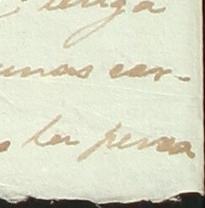 tenga
unas car-
la perso